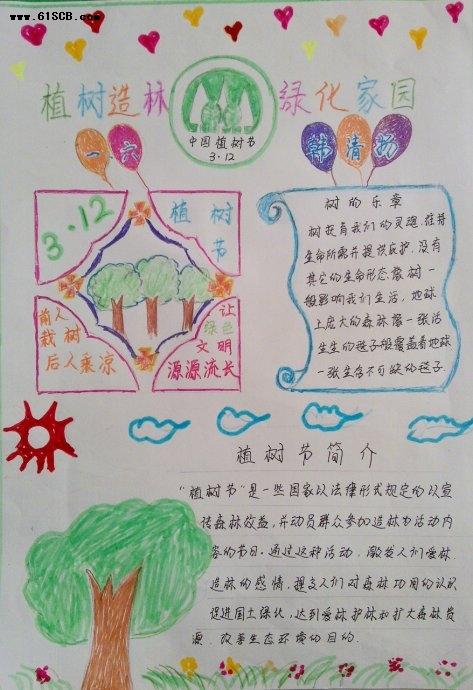 www.61SCB.com
植树造林 绿化家园
中国植树节
3·12
一 六
韩 清 扬
3·12
植树节
前人栽树
后人乘凉
让绿色文明
源源流长
树的乐章
树抚育我们的灵魂,维持
生命所需并提供庇护,没有
其它的生命形态像树一
般影响我们生活,地球
上庞大的森林像一张活
生生的毯子般覆盖着地球
一张生命不可缺的毯子.
植树节简介
"植树节"是一些国家以法律形式规定的以宣
传森林效益,并动员群众参加造林为活动内
容的节日.通过这种活动,激发人们爱林
造林的感情,提高人们对森林功用的认识
促进国土绿化,达到爱林护林和扩大森林资
源、改善生态环境的目的.